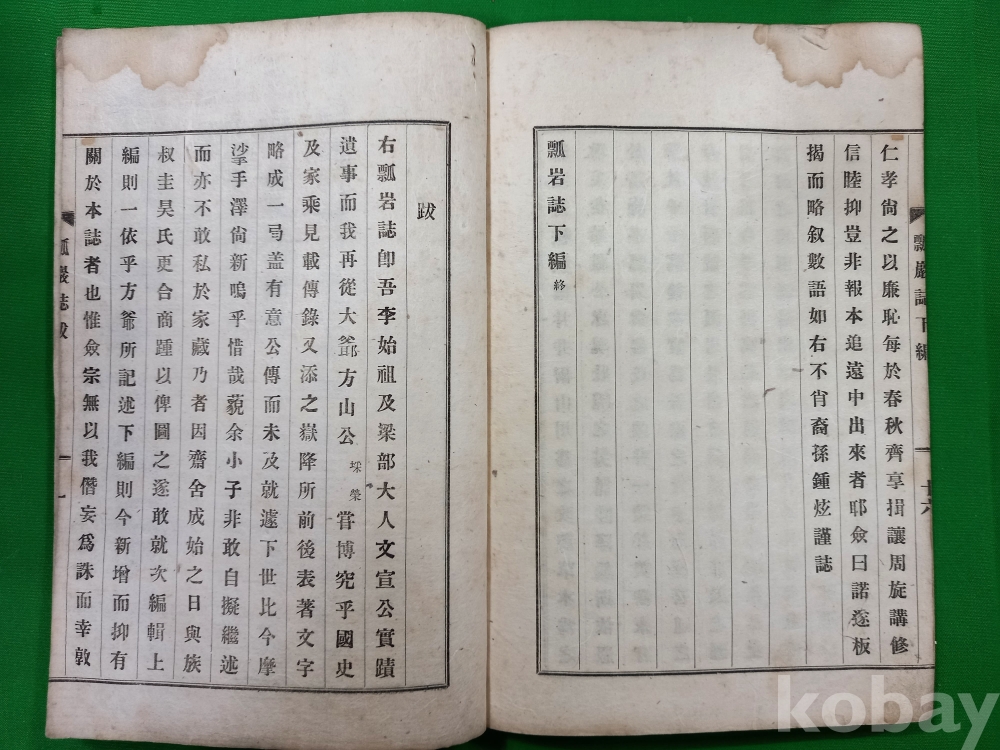 瓢巖誌下編
十六
仁孝尙之以廉恥每於春秋齊享揖讓周旋講修
信睦抑豈非報本追遠中出來者耶僉曰諾遂板
揭而略叙數語如右不肖裔孫鍾炫謹誌
瓢岩誌下編 終
跋
右瓢岩誌卽吾李始祖及梁部大人文宣公實蹟
遺事而我再從大爺方山公 埰榮 甞博究乎國史
及家乘見載傳錄又添之嶽降所前後表著文字
略成一弓盖有意公傳而未及就遽下世比今摩
挲手澤尙新嗚乎惜哉藐余小子非敢自擬繼述
而亦不敢私於家藏乃者因齋舍成始之日與族
叔圭昊氏更合商踵以俾圖之遂敢就次編輯上
編則一依乎方爺所記述下編則今新增而抑有
關於本誌者也惟僉宗無以我僭妄爲誅而幸敦
瓢巖誌跋
一
kobay